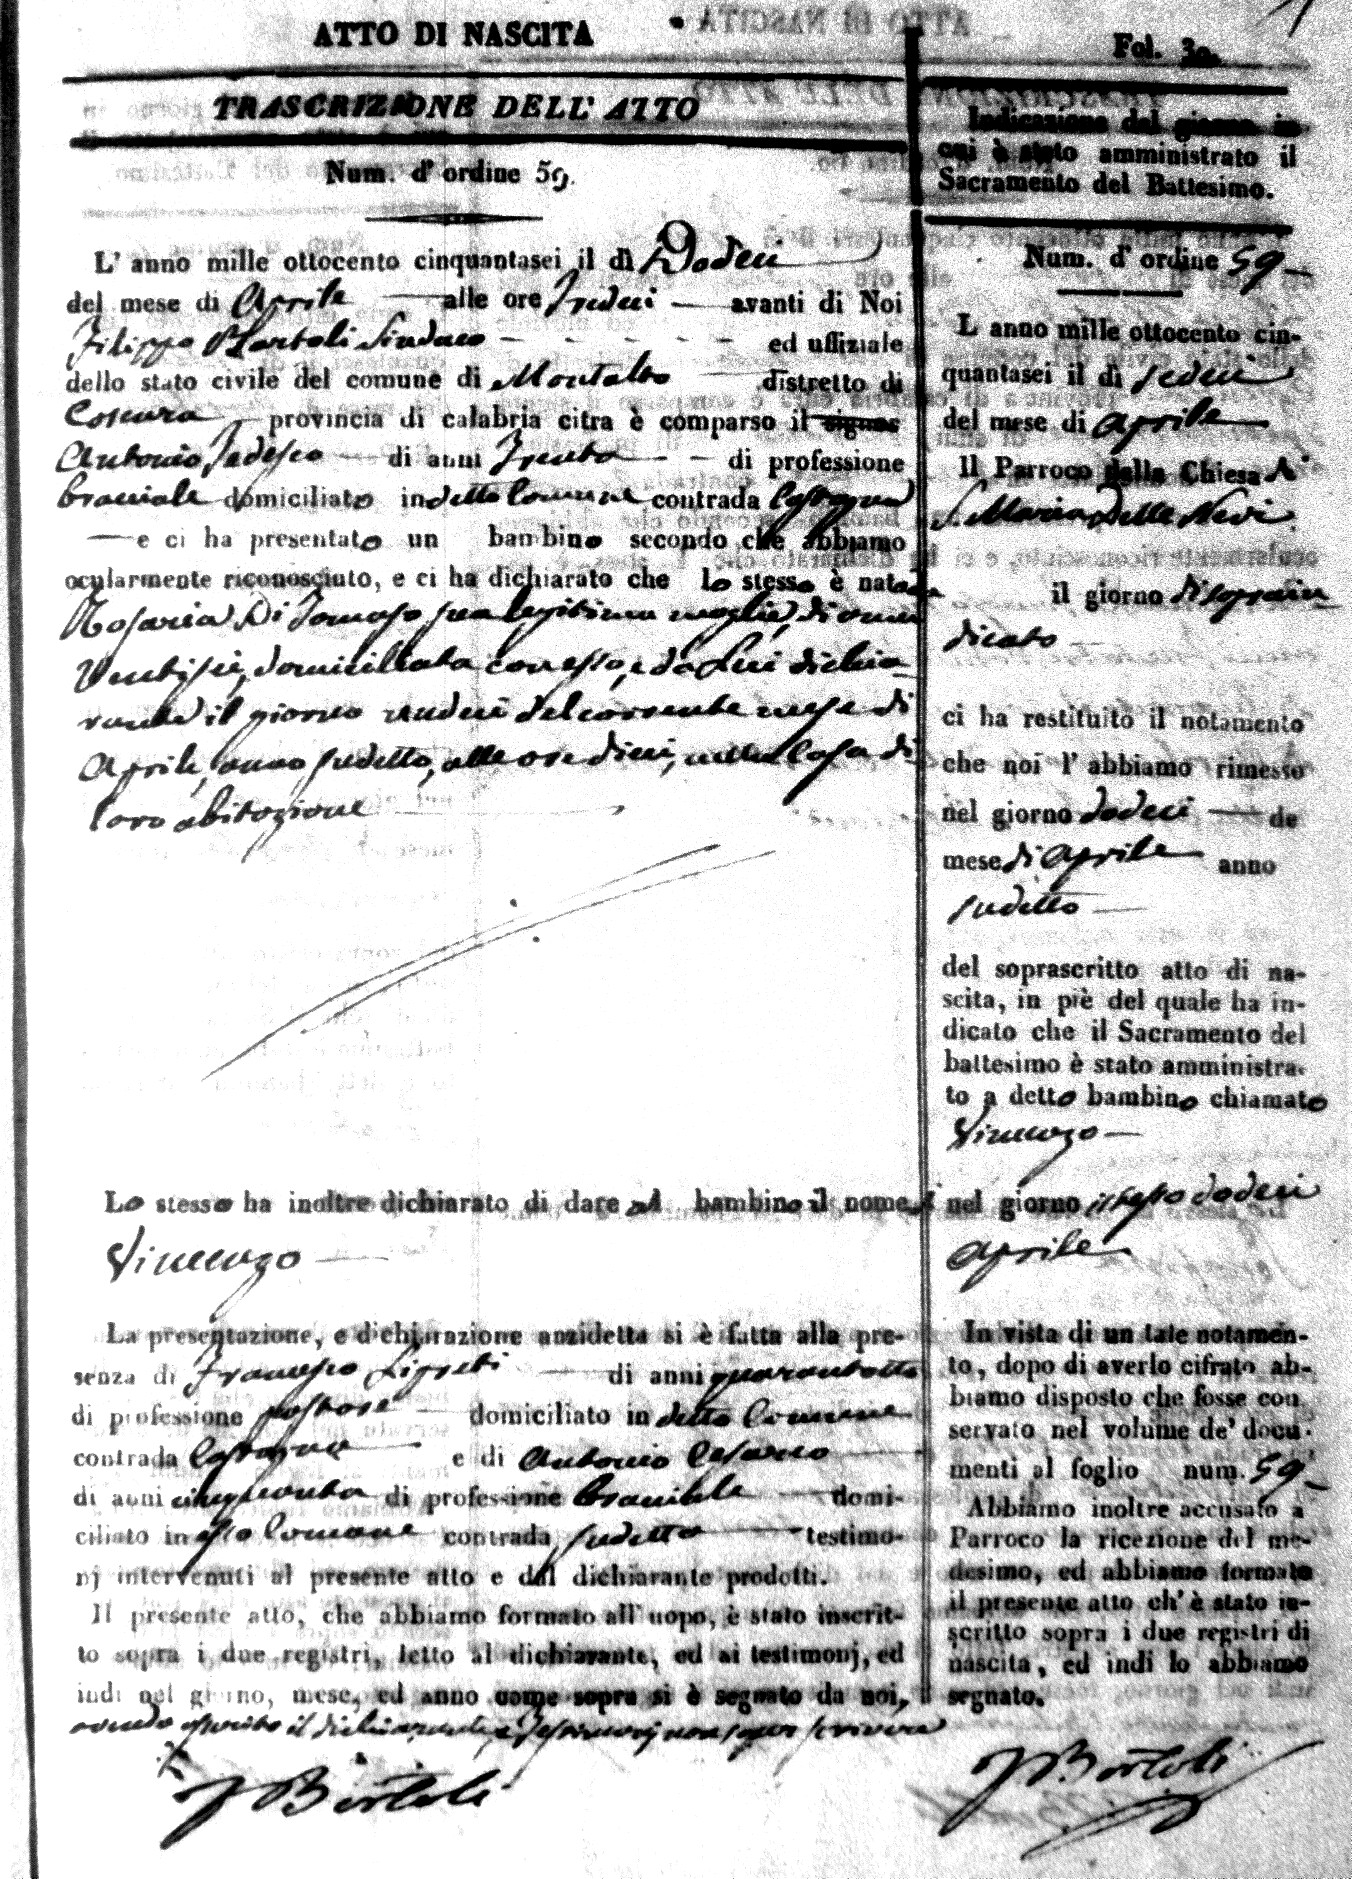 ATTO DI NASCITA
TRASCRIZIONE DELL' ATTO
Num. d' ordine 59.
L' anno mille ottocento cinquantasei il dì Dodeci
del mese di Aprile alle ore Tredeci avanti di Noi
Filippo Bartoli Sindaco ed uffiziale
dello stato civile del comune di Montalto distretto di
Cosenza provincia di calabria citra è comparso il signor
Antonio Tedesco di anni Trenta di professione
braciale domiciliato in detto Comune contrada
e ci ha presentato un bambino secondo che abbiamo
ocularmente riconosciuto, e ci ha dichiarato che lo stesso è nato da
Rosaria Di Tomaso sua legitima moglie, di anni
Ventisei, domiciliata con esso, e da Lui dichia
rante il giorno undeci del corrente mese di
Aprile, anno sudetto, alle ore dieci, nella Casa di
loro abitazione
Lo stesso ha inoltre dichiarato di dare al bambino il nome di
Vincenzo
La presentazione, e dichiarazione anzidetta si è fatta alla pre-
senza di Francesco di anni quarantotto
di professione pastore domiciliato in detto Comune
contrada e di Antonio Cesario
di anni cinquanta di professione Braciale domi-
ciliato in esso Comune contrada sudetta testimo-
nj intervenuti al presente atto e dal dichiarante prodotti.
Il presente atto, che abbiamo formato all' uopo, è stato inscrit-
to sopra i due registri, letto al dichiarante, ed ai testimonj, ed
indi nel giorno, mese, ed anno come sopra si è segnato da noi,
avendo asserito il dichiarante, e Testimonj non saper scrivere
F Bartoli
Fol. 30.
Indicazione del giorno in
cui è stato amministrato il
Sacramento del Battesimo.
Num. d' ordine 59
L anno mille ottocento cin-
quantasei il dì sedeci
del mese di Aprile
Il Parroco della Chiesa di
S. Maria delle Nevi
il giorno di sopra in
dicato
ci ha restituito il notamento
che noi l' abbiamo rimesso
nel giorno dodeci de
mese di Aprile anno
sudetto
del soprascritto atto di na-
scita, in piè del quale ha in-
dicato che il Sacramento del
battesimo è stato amministra-
to a detto bambino chiamato
Vincenzo
nel giorno istesso dodeci
Aprile
In vista di un tale notamen-
to, dopo di averlo cifrato ab-
biamo disposto che fosse con
servato nel volume de' docu-
menti al foglio num. 59
Abbiamo inoltre accusato a
Parroco la ricezione del me-
desimo, ed abbiamo formato
il presente atto ch' è stato in-
scritto sopra i due registri di
nascita, ed indi lo abbiamo
segnato.
F Bartoli